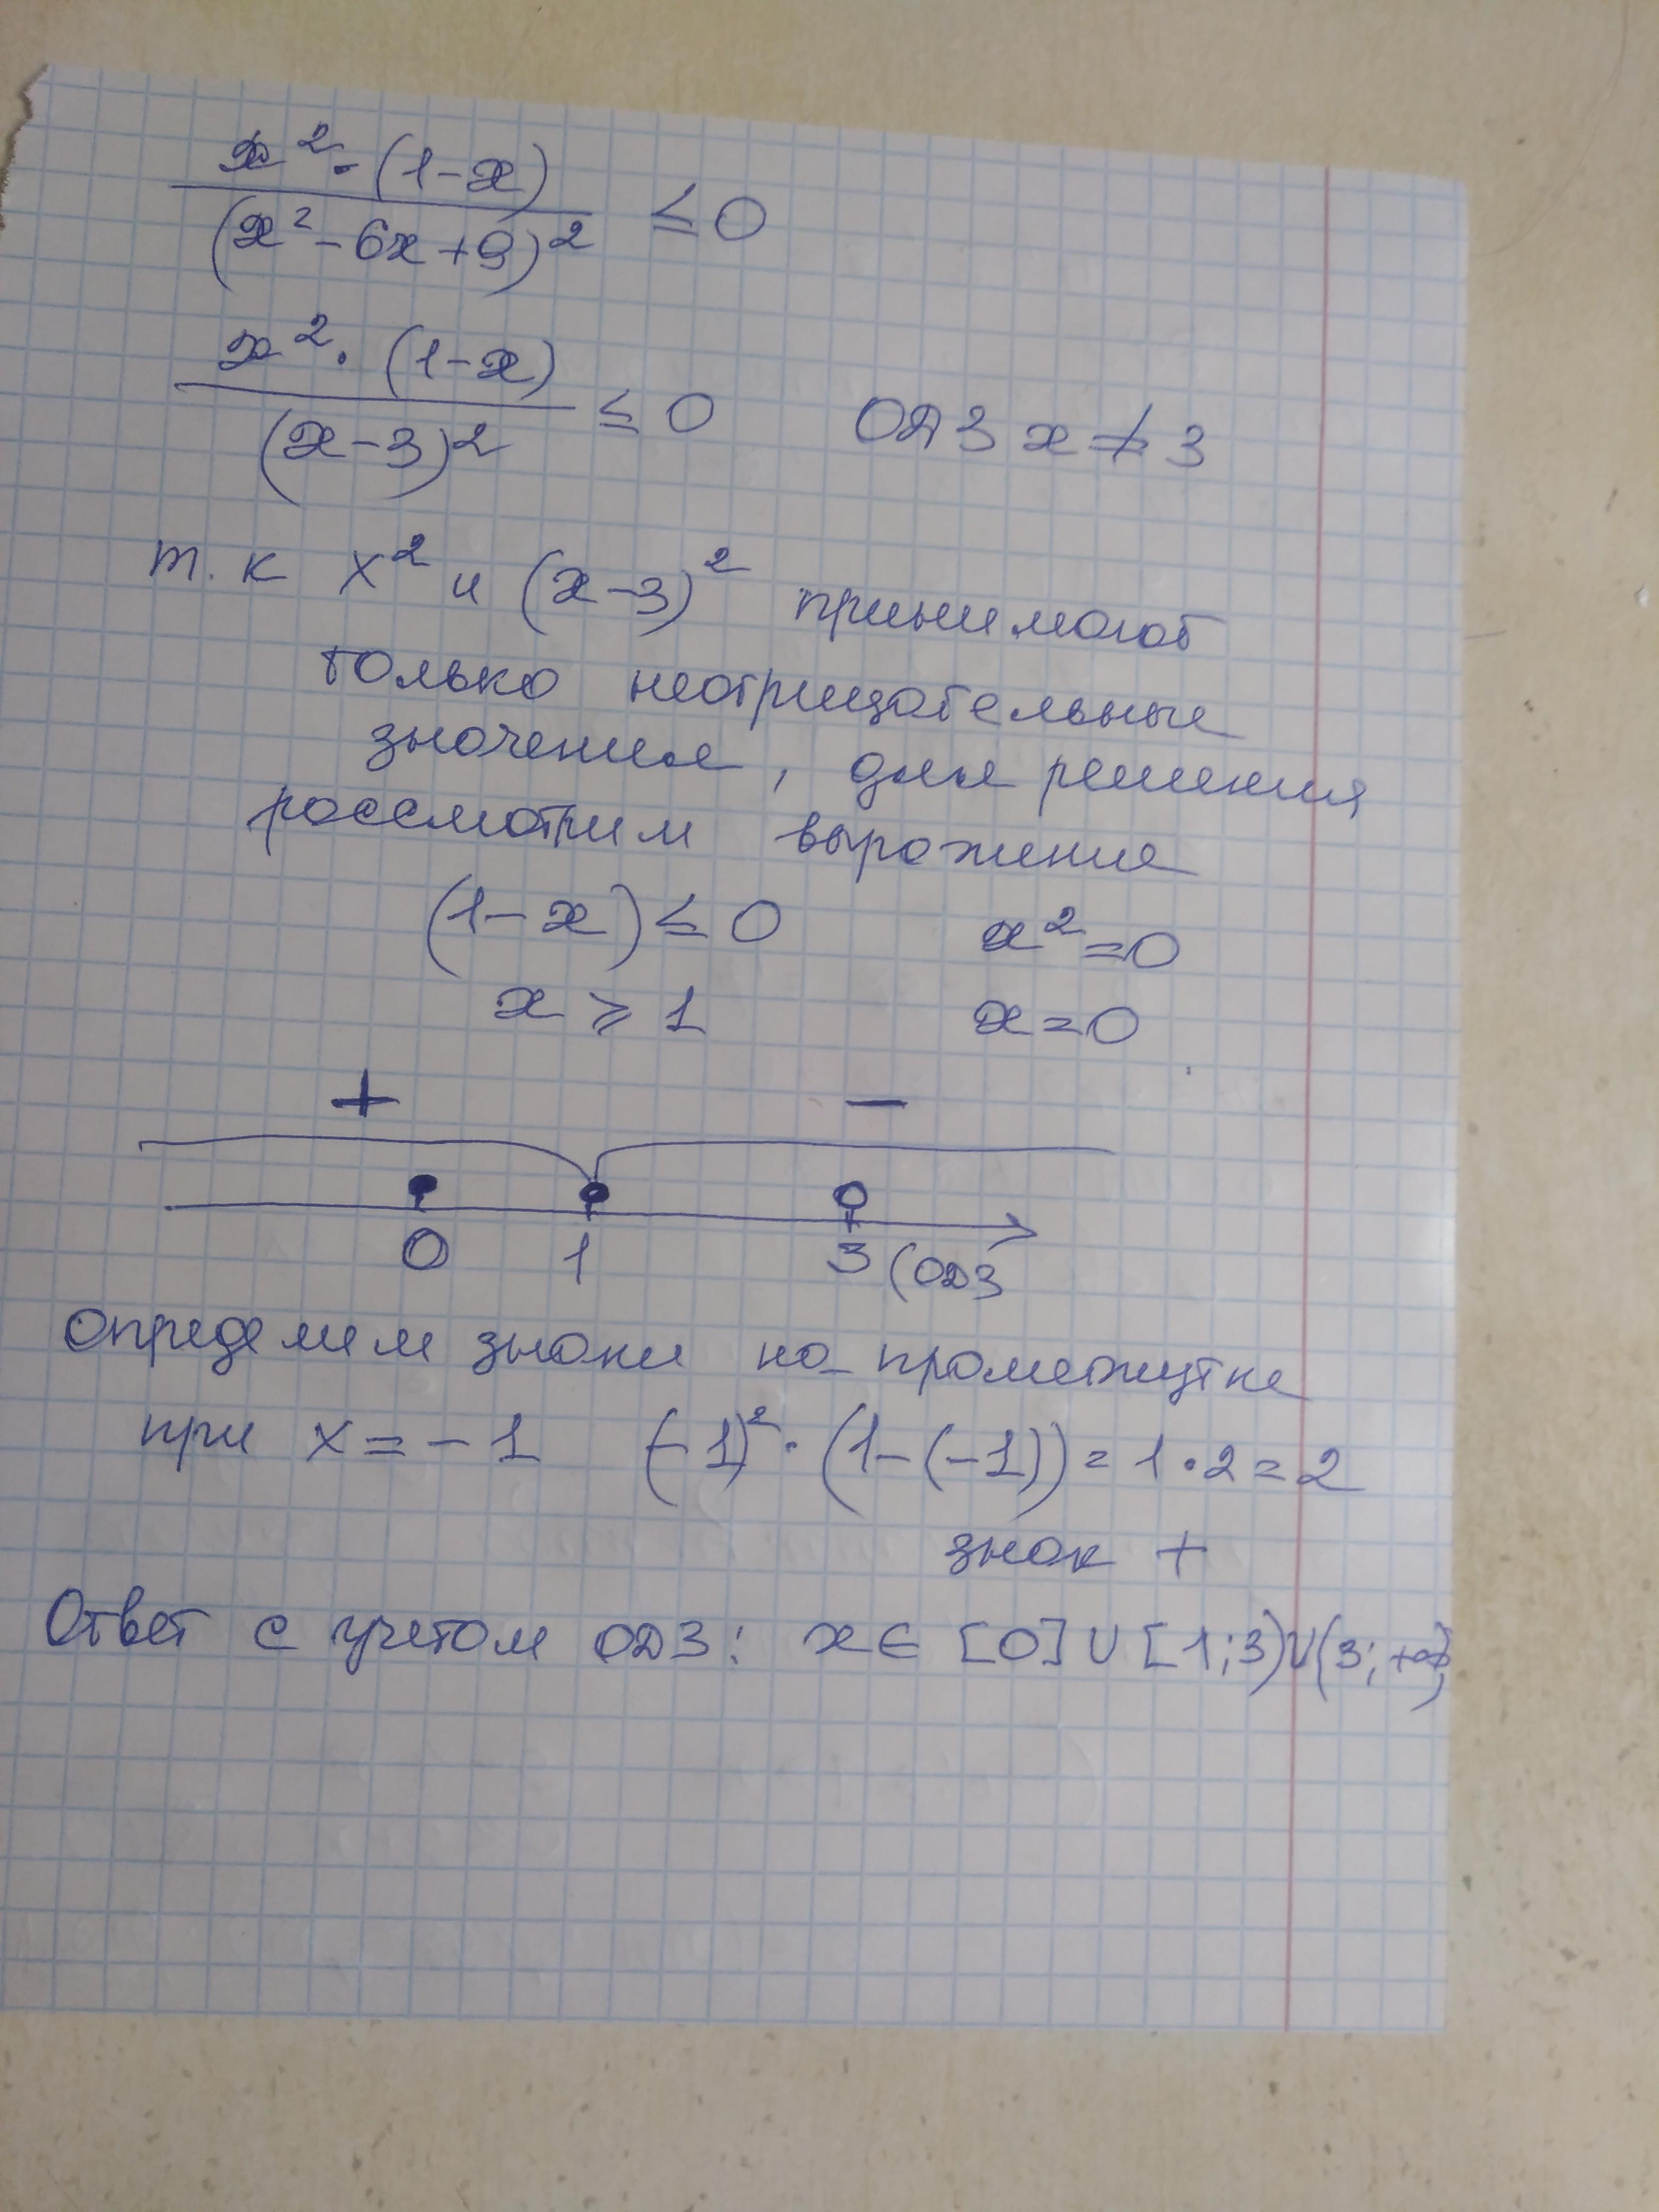 x² · (1-x)
(x² - 6x + 9)² ≤ 0
x² · (1-x)
(x-3)² ≤ 0 ОДЗ x ≠ 3
т. к x² и (x-3)² принимают
только неотрицательные
значения, для решения
рассмотрим выражение
(1-x) ≤ 0 x² = 0
x ⩾ 1 x = 0
+ −
0 1 3 (ОДЗ
Определим знаки на промежутке
при x = -1 (-1)² · (1-(-1)) = 1 · 2 = 2
знак +
Ответ с учетом ОДЗ: x ∈ [0] ∪ [1; 3) ∪ (3; +∞)